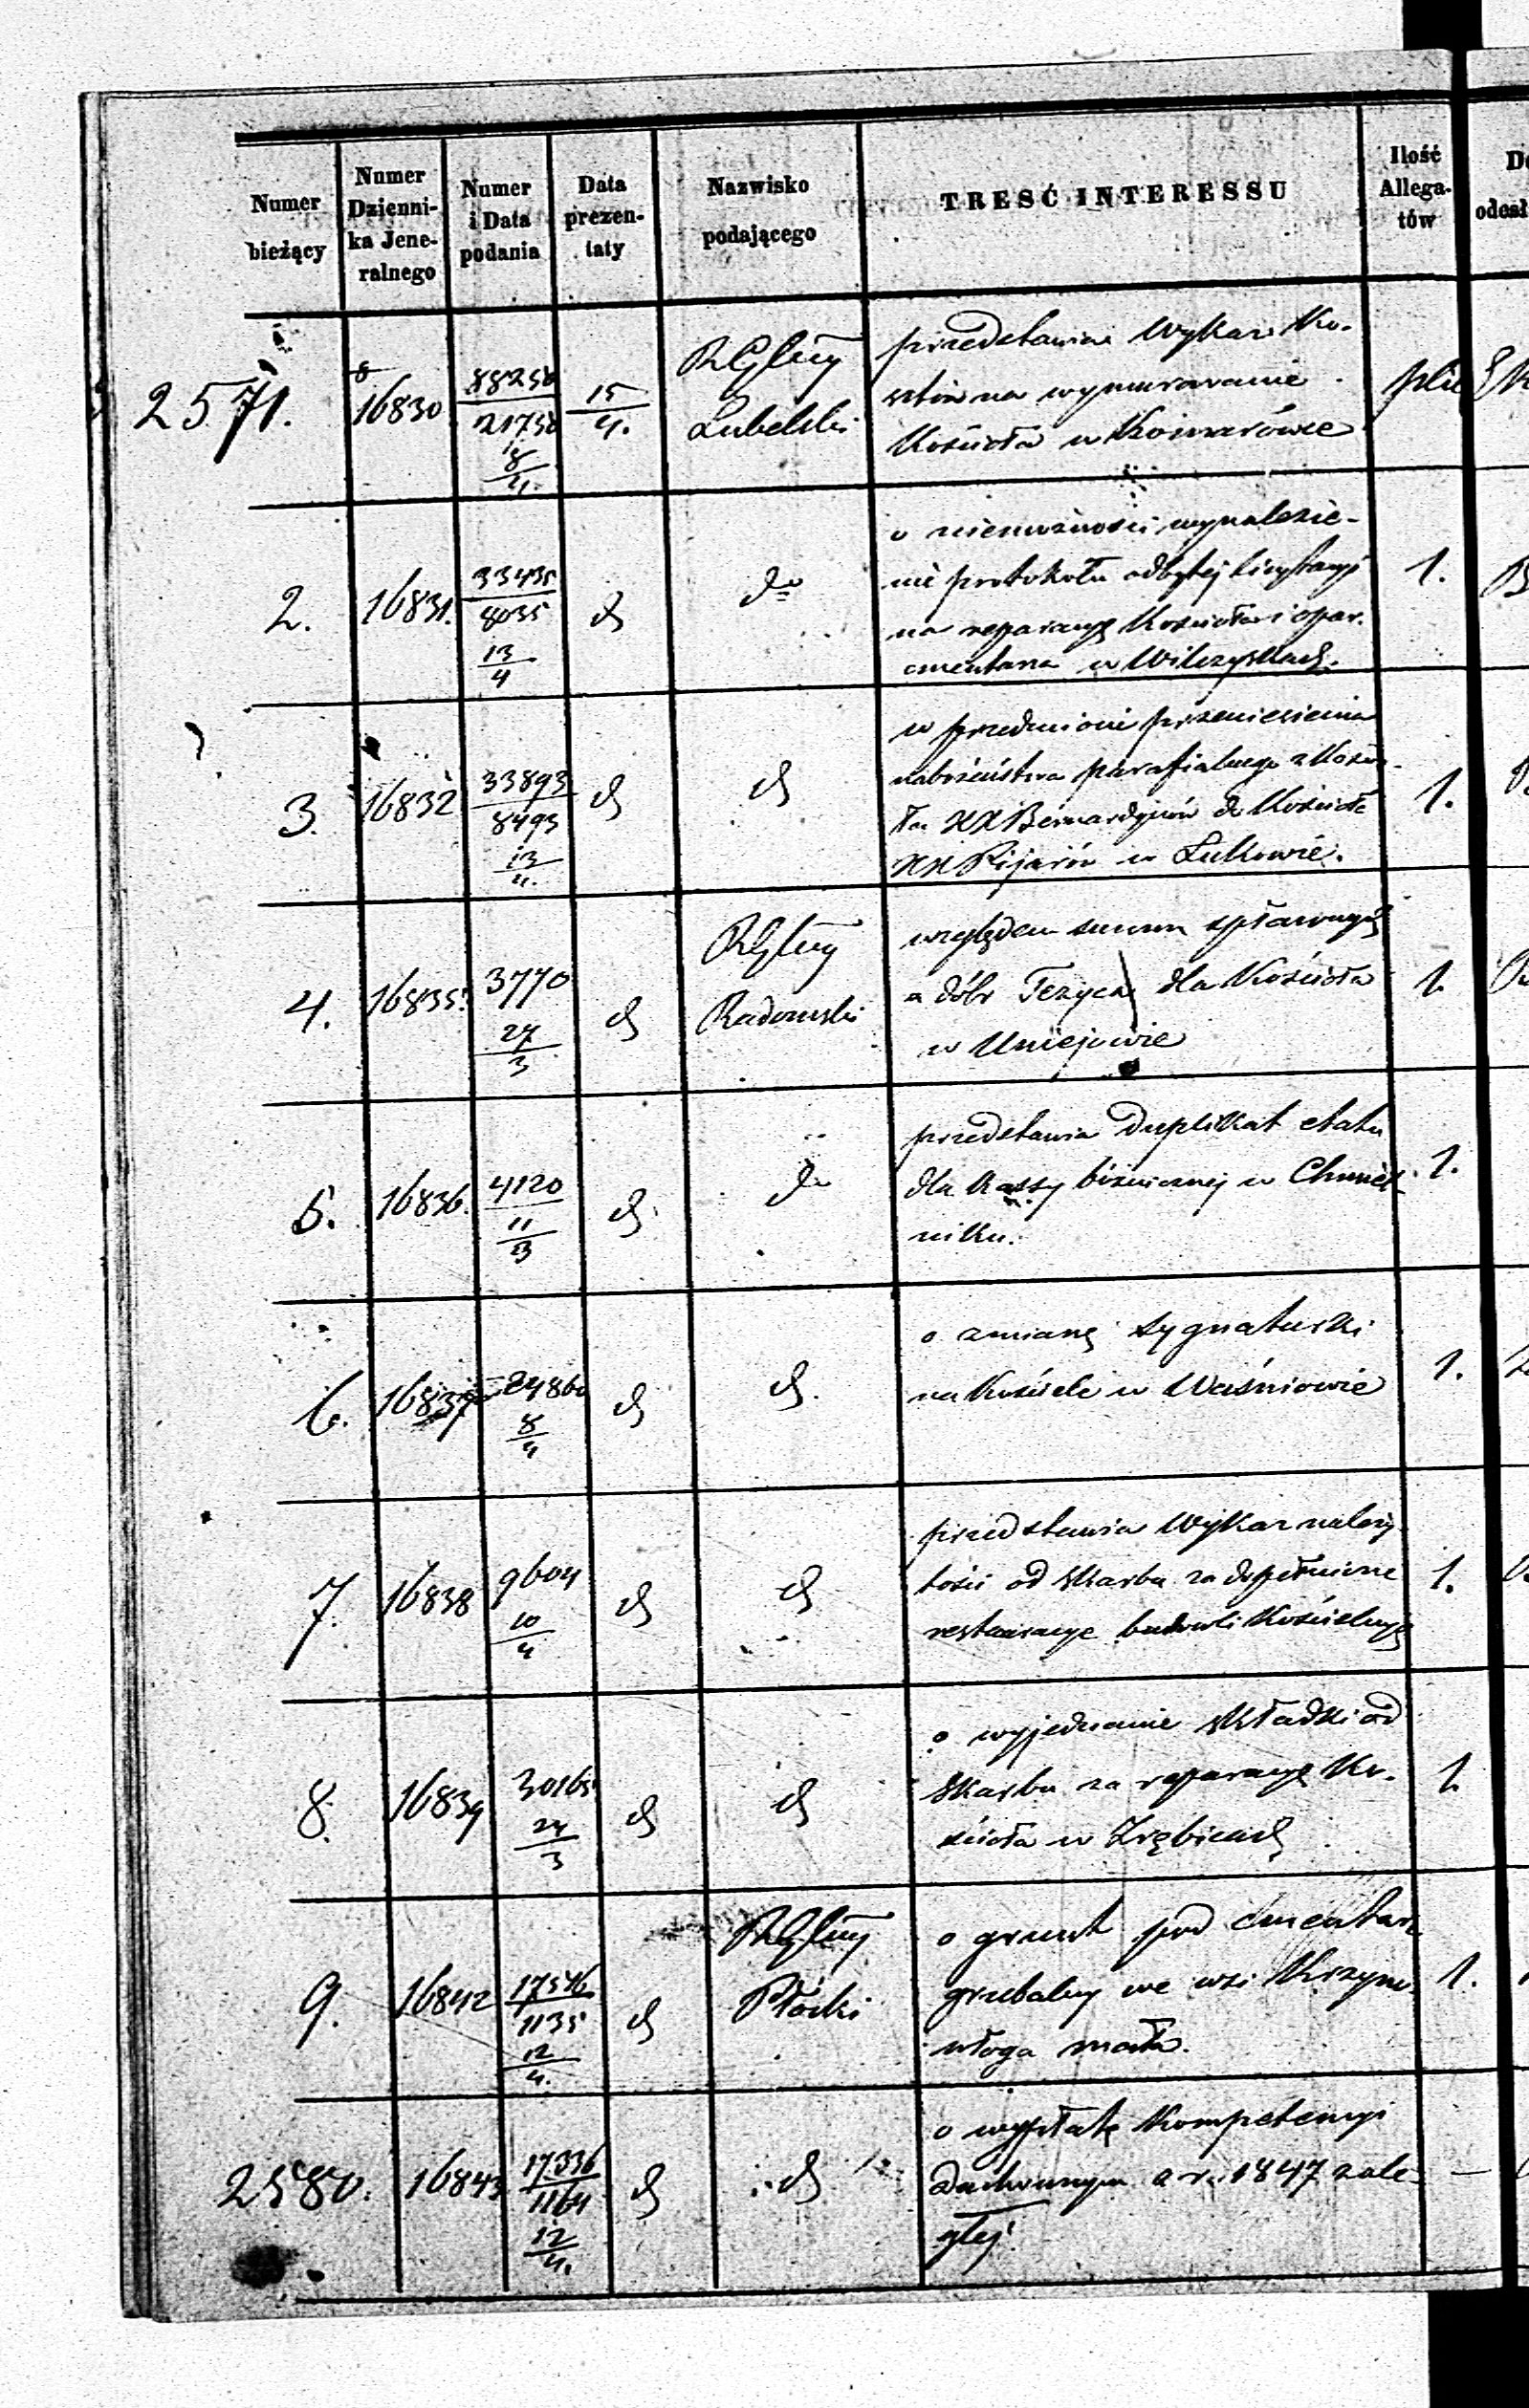 Numer bieżący
Numer Dzienni-ka Jene-ralnego
Numer i Data podania
Data prezen-taty
Nazwisko podającego
TRESĆ INTERESSU
Ilość Allega-tów
2571.
16830
21750
8/4.
15/4.
Lubelski
przedstawia Wykaz Ko-
sztów na wymurowanie
Kościoła w Komarówce
2.
16831.
33435
8035
13/4
d
do
o nieważności wynalezie-
nie protokółu odbytej licytacyi
na reparacyę Kościoła i opar.
cmentarza w Wilczyskach.
1.
3.
16832
33893
8493
13/4.
d
d
w przedmiocie przeniesienia
nabożeństwa parafialnego z Kościo-
ła XX Bernardynów do Kościoła
XX Pijarów w Łukowie.
1.
4.
16835.
3770
27/3
d
Radomski
względem summ spłaconych
z dóbr dla Kościoła
w Uniejowie
1.
5.
16836.
4120
11/3
d
do
przedstawia Duplikat etatu
dla Kassy bóżniczej w Chmiel-
niku.
1.
6.
16837
24860
8/4
d
d.
o zmianę sygnaturki
na Kościele w Waśniowie
1.
7.
16838
9604
10/4
d
d
przedstawia Wykaz należy-
tości od Skarbu za dopełnione
restauracye budowli Kościelnych
1.
8.
16839
30165
24/3
d
d
o wyjednanie składki od
Skarbu za reparacyę Ko-
ścioła w Zrębicach
1.
9.
16842
17576
1135
12/4.
d
Płocki
o grunt pod cmentarz
grzebalny we wsi Krzyno-
włoga mała.
1.
2580.
16843
17336
1164
12/4.
d
d
o wypłatę Kompetencyi
duchownym z r. 1847 zale-
głej.
—